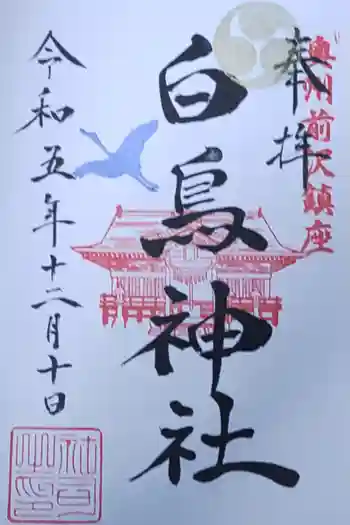 奉拝
奥州前沢鎮座
白鳥神社
令和五年十二月十日